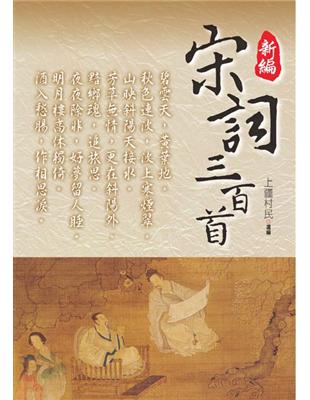 新編
宋詞三百首
上疆村民 選編
碧雲天，黃葉地。
秋色連波，波上寒煙翠。
山映斜陽天接水。
芳草無情，更在斜陽外。
黯鄉魂，追旅思。
夜夜除非，好夢留人睡。
明月樓高休獨倚。
酒入愁腸，作相思淚。